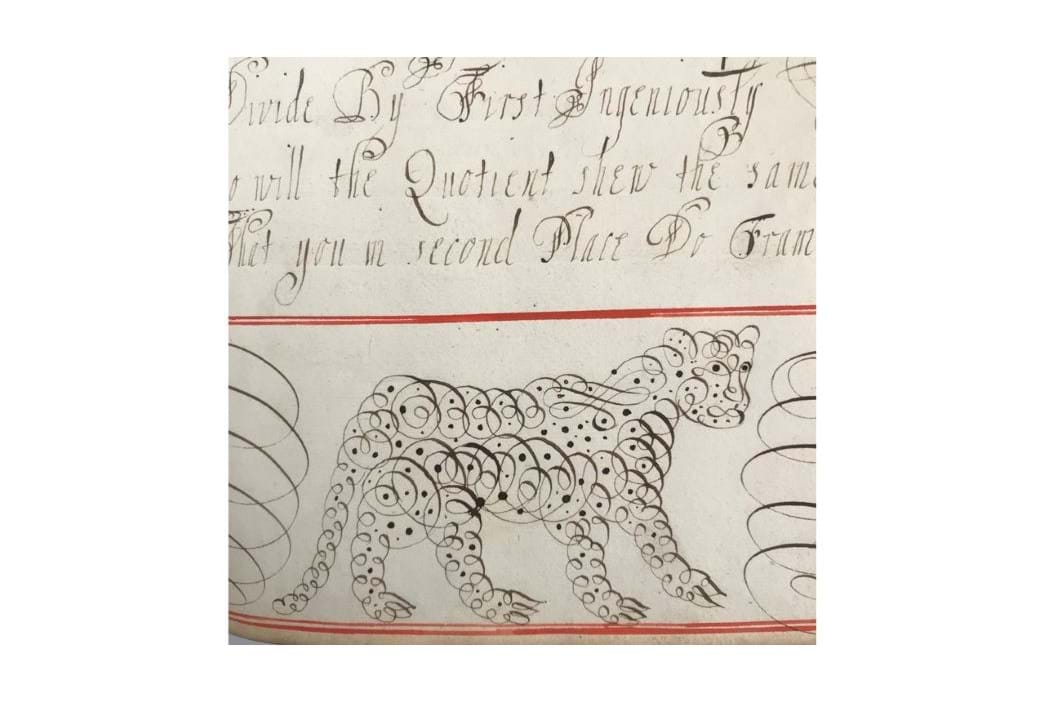 Divide By First Ingeniously
o will the Quotient shew the same
That you in second Place Do Fram